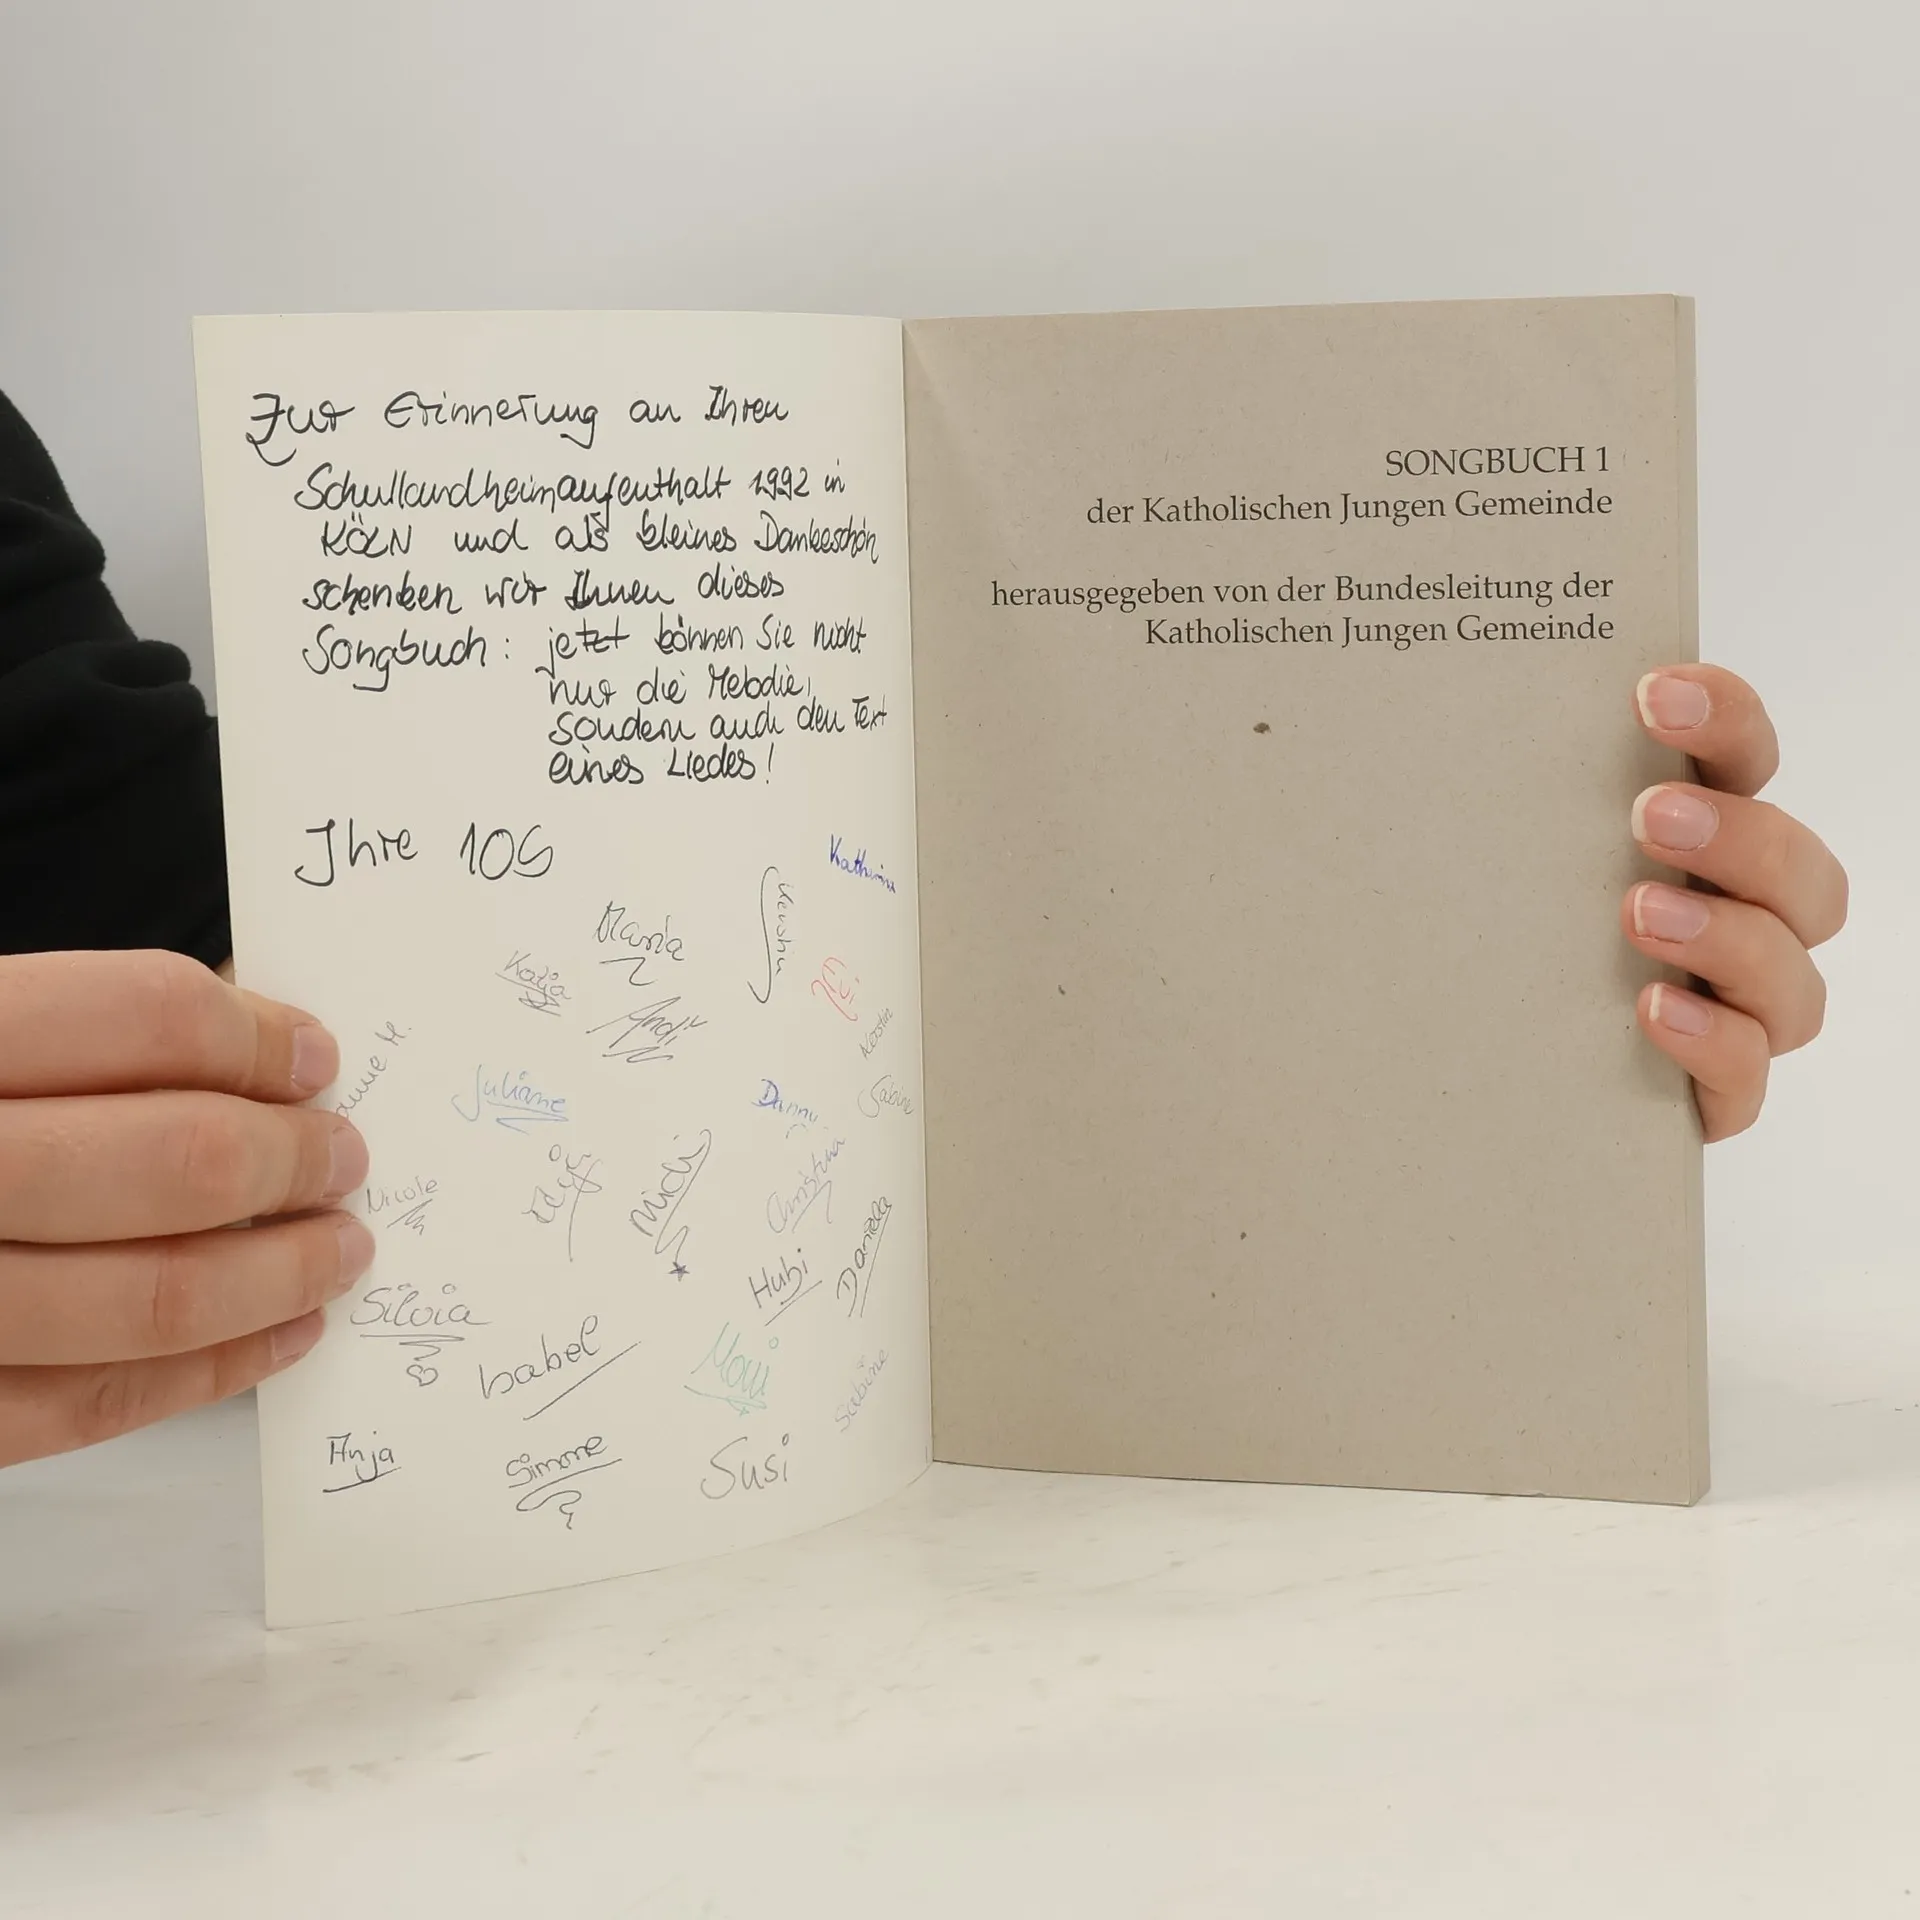 Zur Erinnerung an Ihren
Schullandheimaufenthalt 1992 in
KÖLN und als kleines Dankeschön
schenken wir Ihnen dieses
Songbuch: jetzt können Sie nicht
nur die Melodie,
sondern auch den Text
eines Liedes!
Ihre 10S
Katharina
Maria
Kerstin
Katja
Andi
Kerstin
Juliane
Danny
Sabine
Nicole
Michi
Christina
Daniela
Hubi
Silvia
Isabel
Moni
Sabine
Anja
Simone
Susi
SONGBUCH 1
der Katholischen Jungen Gemeinde
herausgegeben von der Bundesleitung der
Katholischen Jungen Gemeinde